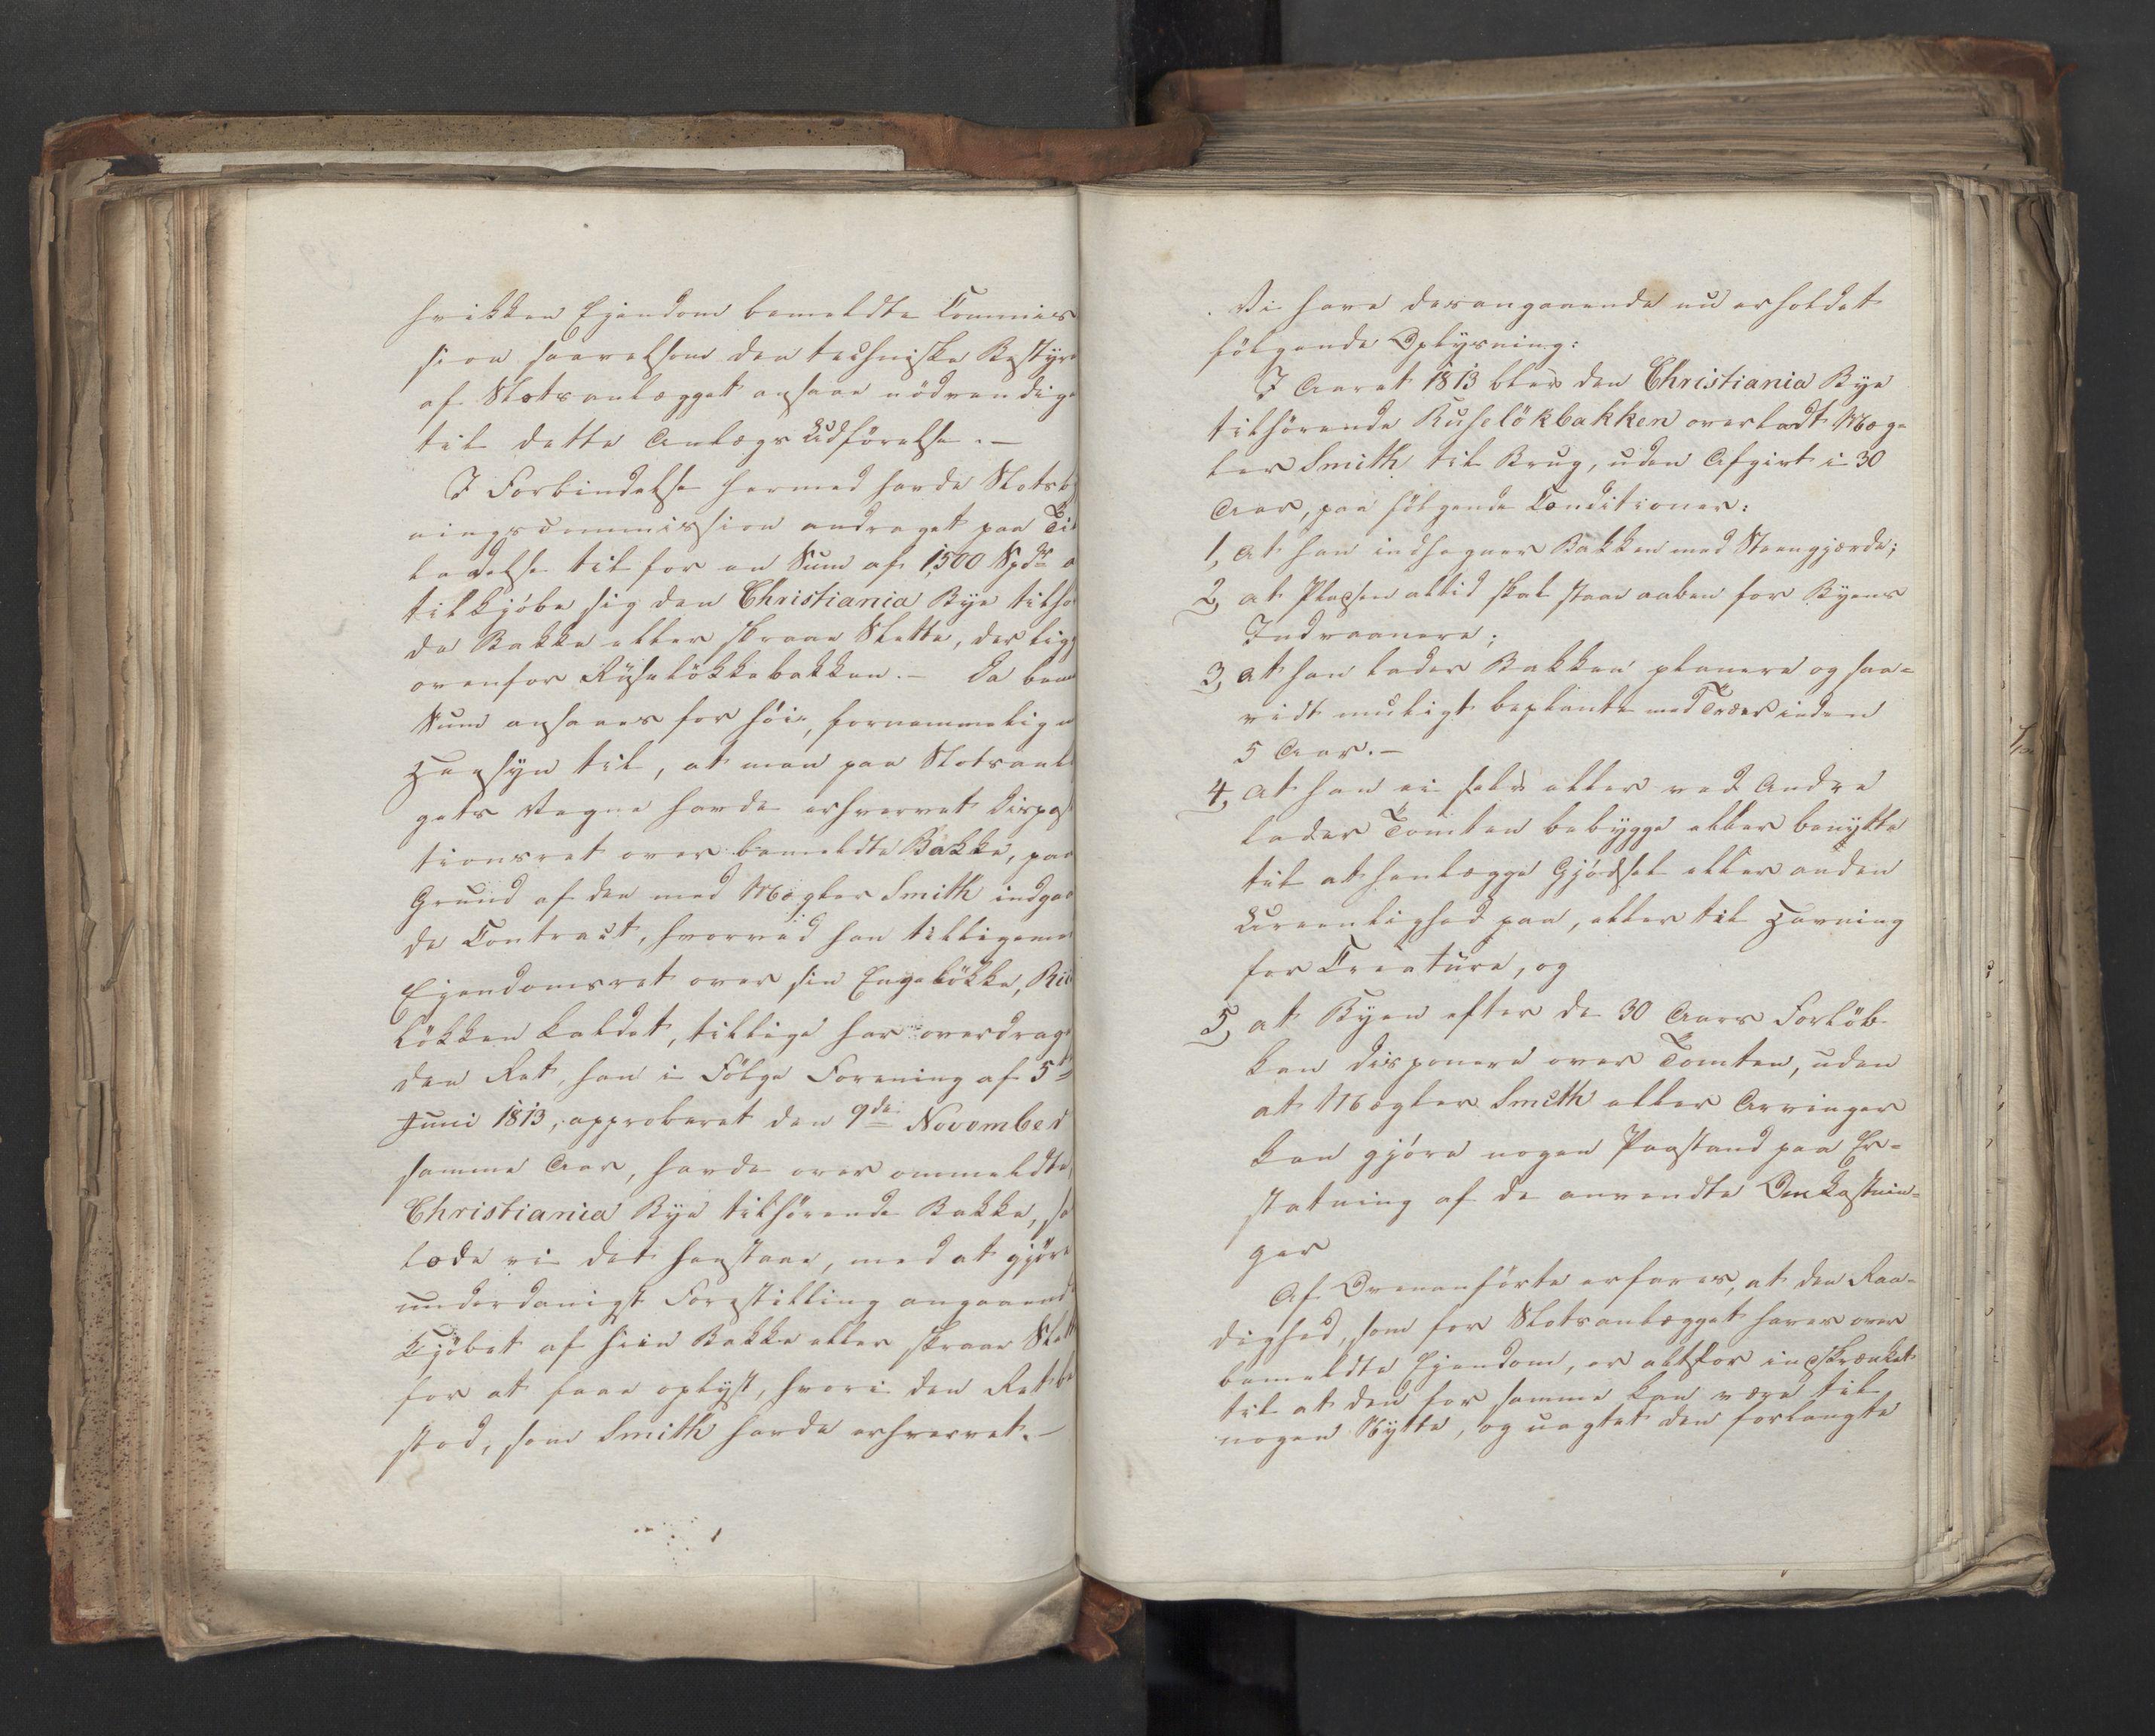 hvilken Ejendom bemeldte Commis
sion saavelsom den techniske Bestyre
af Slotsanlægget ansaae nødvendig
til dette Anlægs Udförelse. —
I Forbindelse hermed havde Slotsb
ningscommission andraget paa Til
ladelse til for en Sum af 1,500 Spdr a
tilkjøbe sig den Christiania Bye tilhø
de Bakke eller skraae Slette, der lig
ovenfor Ruseløkkebakken. — Da bem
Sum ansaaes for høi, fornemmelig
Hensyn til, at man paa Slotsanl
gets Vegne havde erhvervet Disposi
tionsret over bemeldte Bakke, paa
Grund af den med Mægler Smith indgaa
de Contract, hvorved han tilligemed
Ejendomsret over sin Engeløkke, Rü
løkken kaldet, tillige har overdrag
den Ret, han i Følge Forening af 5te
Juni 1813, approberet den 9de November
samme Aar, havde over ommeldte,
Christiania Bye tilhørende Bakke, saa
lode vi det henstaae, med at gjøre
underdanigst Forestilling angaaende
Kjøbet af hiin Bakke eller skraae Slette
for at faae oplyst, hvori den Ret be
stod, som Smith havde erhvervet. —
Vi have desangaaende nu erholdet
følgende Oplysning:
I Aaret 1813 blev den Christiania Bye
tilhørende Ruseløkbakken overladt Mæg-
ler Smith til Brug, uden Afgivt i 30
Aar, paa følgende Conditioner:
1, at han indhegner Bakken med Steengjærde;
2, at Pladsen altid skal staae aaben for Byens
Indvaanere;
3, at han lader Bakken planere og saa-
vidt muligt beplante med Træer inden
5 Aar. —
4, at han ei selv eller ved Andre
lader Tomten bebygge eller benytte
til at henlægge Gjødsel eller anden
Ureenlighed paa, eller til Havning
for Creature, og
5, at Byen efter de 30 Aars Forløb
kan disponere over Tomten, uden
at Mægler Smith eller Arvinger
kan gjøre nogen Paastand paa Er-
statning af de anvendte Omkostnin-
ger
Af Ovenanførte erfares, at den Raa-
dighed, som for Slotsanlægget haves over
bemeldte Ejendom, er altfor indskrænket
til at den for samme kan være til
nogen Nytte, og uagtet den forlangte